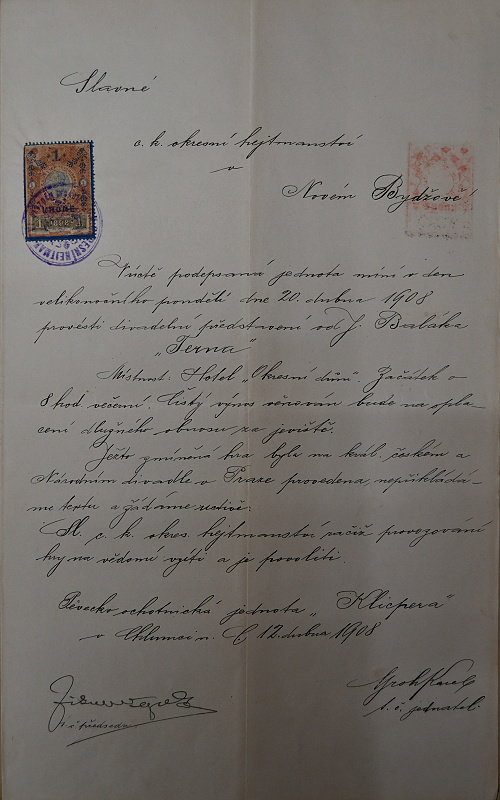 Slavné
c. k. okresní hejtmanství
v
Novém Bydžově
1
1898
Úctě podepsaná jednota míní v den
velikonočního pondělí dne 20. dubna 1908
provésti divadelní představení od J. Baláka
„Terna"
Místnost: Hotel „Okresní dům". Začátek o
8 hod. večerní. Čistý výnos věnován bude na spla
cení dlužného obnosu za jeviště.
Ježto zmíněná hra byla na král. českém a
Národním divadle v Praze provedena, nepřikládá-
me textu a žádáme uctivě:
Sl. c. k. okres. hejtmanství račiž provozování
hry na vědomí vzíti a je povoliti.
Pěvecko ochotnická jednota „Klicpera"
v Chlumci n. C. 12. dubna 1908
Groh Karel
t. č. jednatel.
t. č. předseda